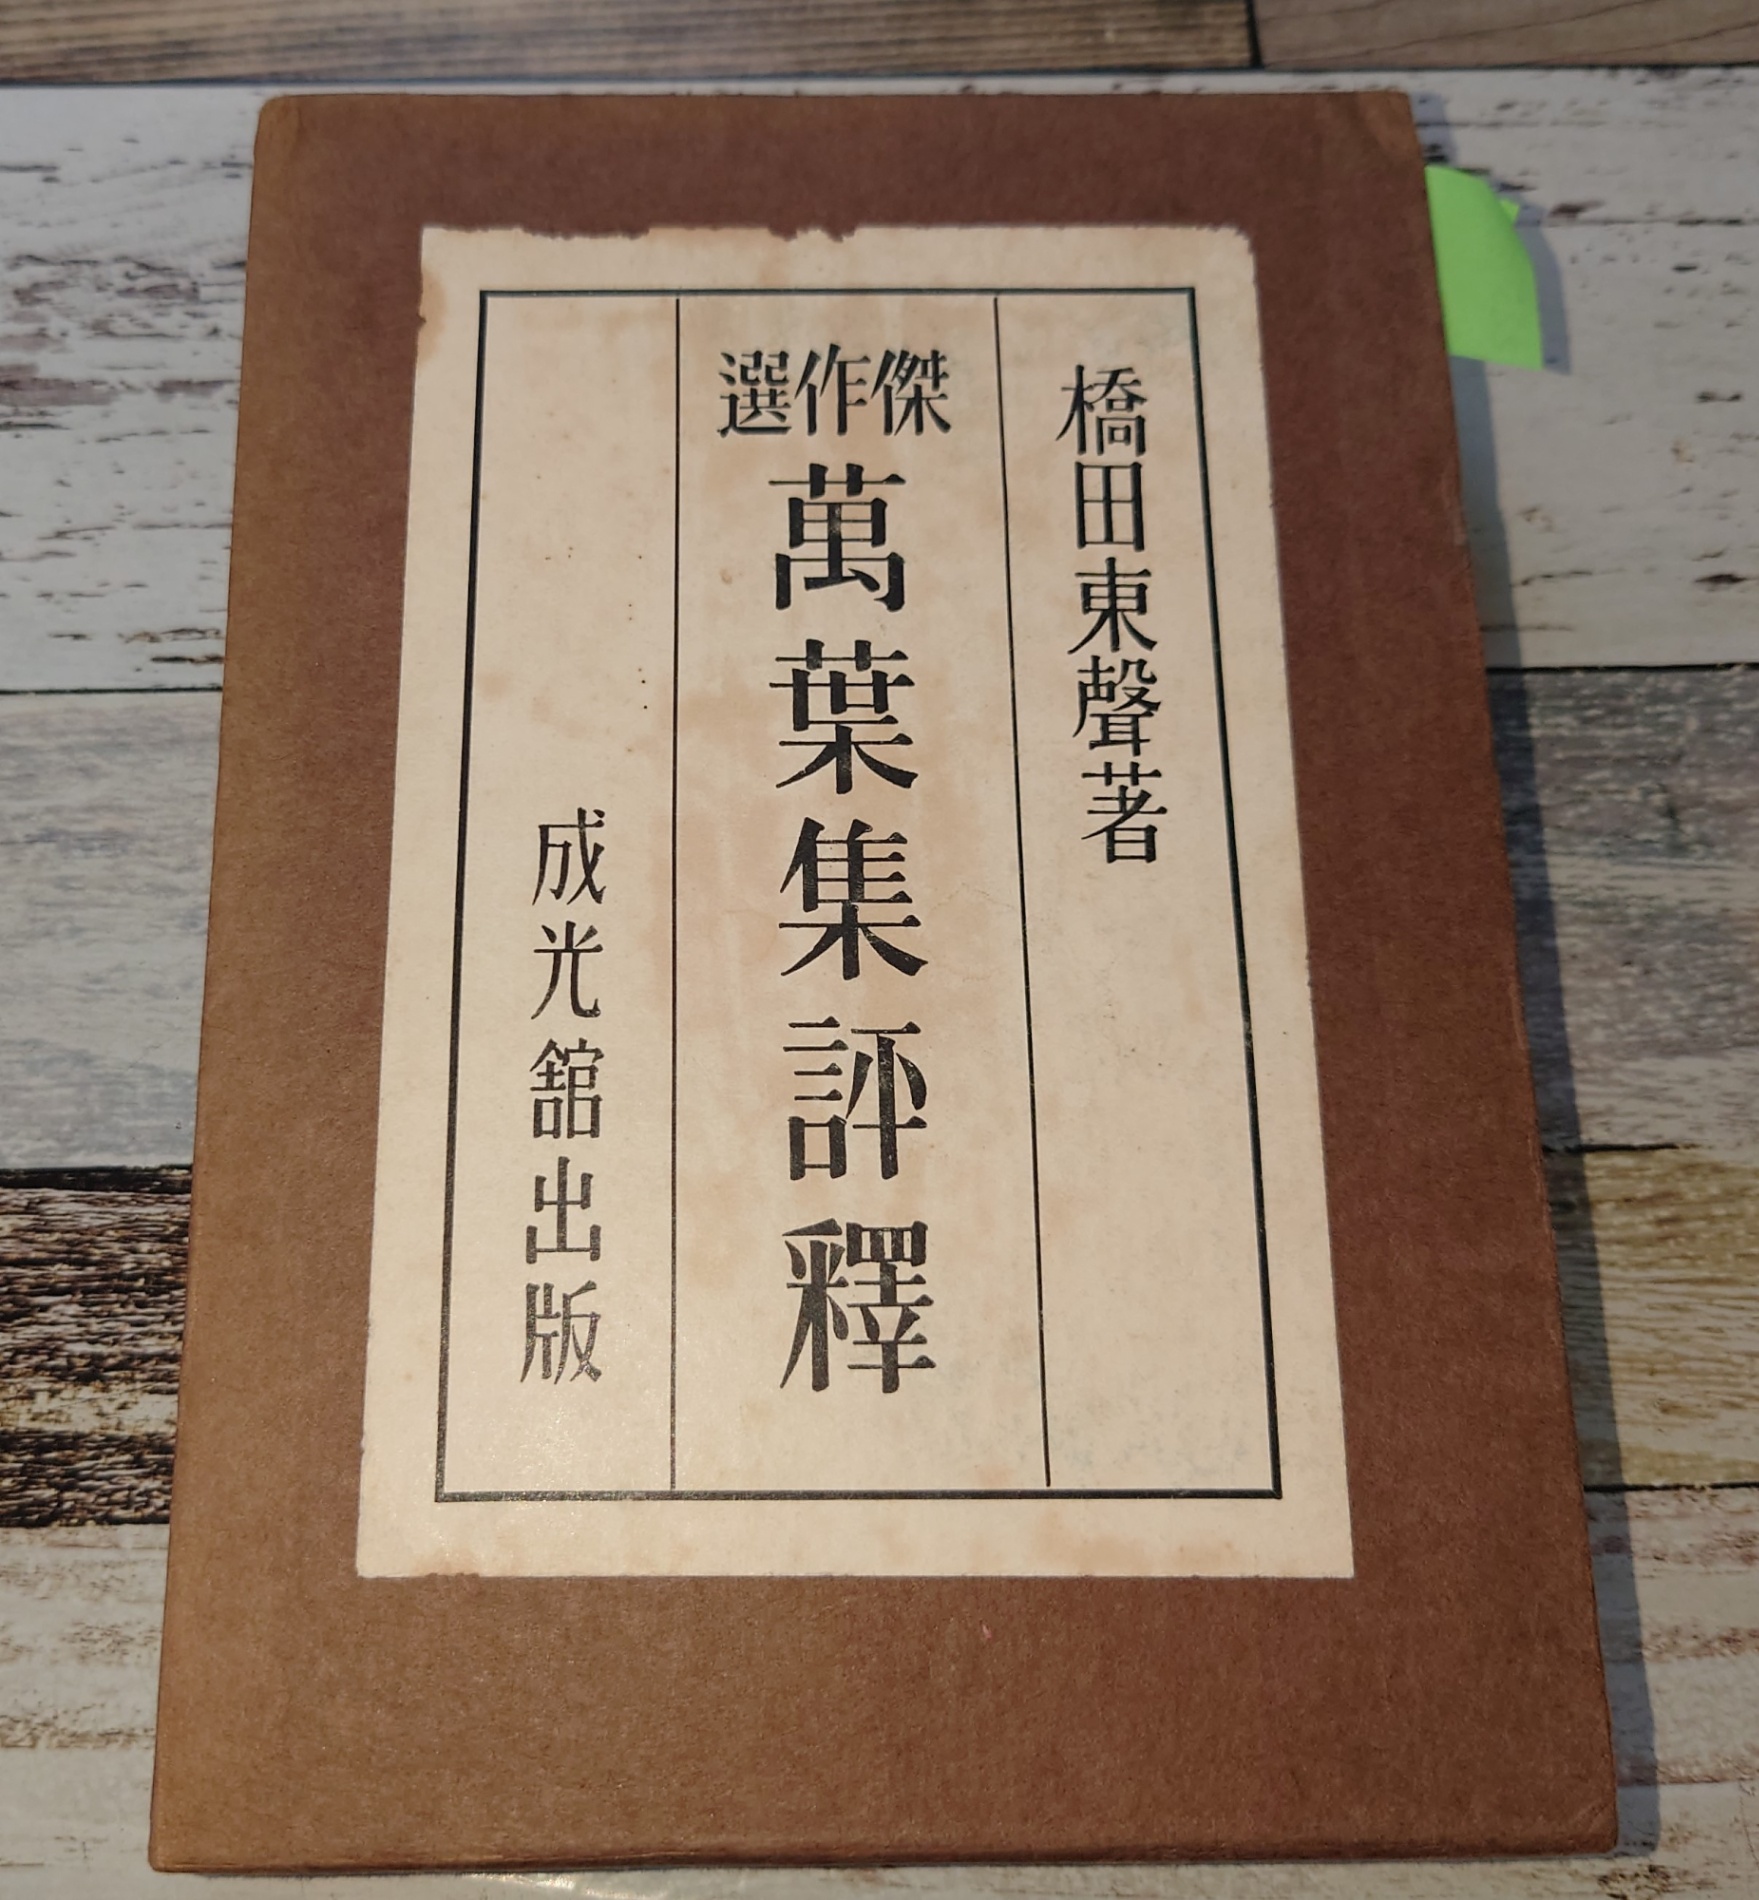 橋田東聲著
傑作選
萬葉集評釋
成光舘出版